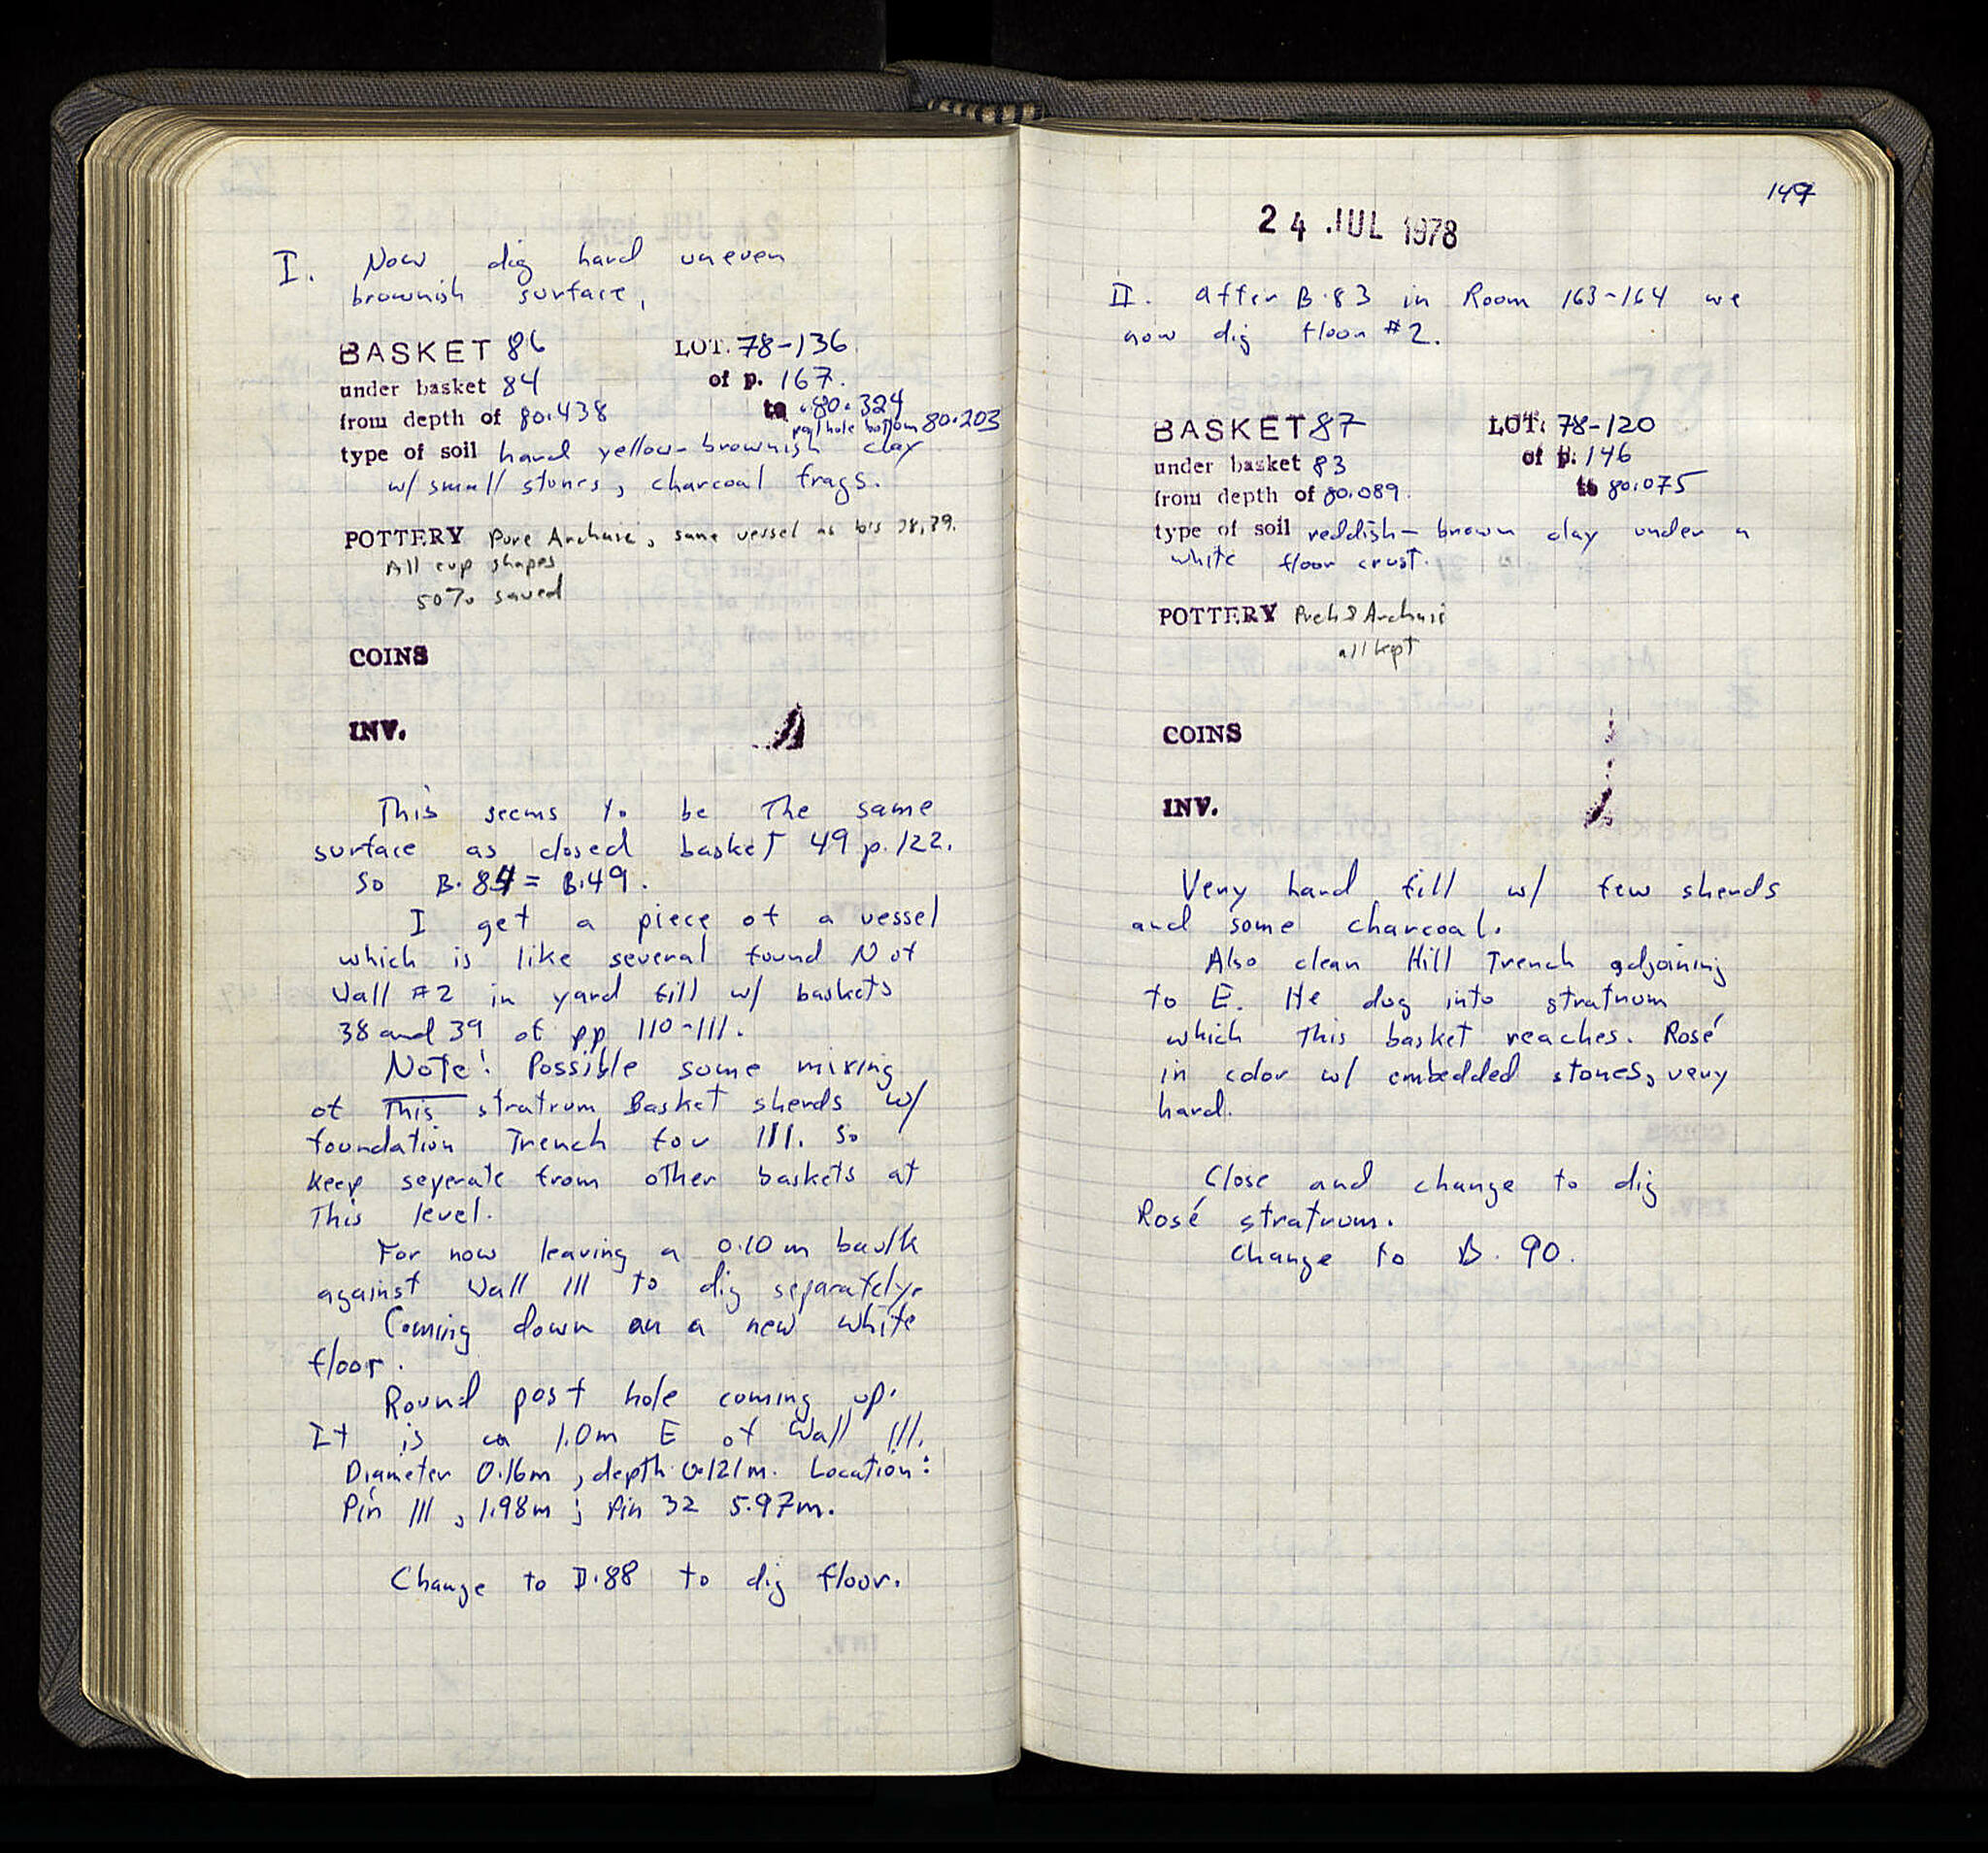 I. Now dig hard uneven
brownish surface,
BASKET 86 LOT. 78-136
under basket 84 of p. 167.
from depth of 80.438 to 80.324
post hole bottom 80.203
type of soil hard yellow-brownish clay
w/ small stones, charcoal frags.
POTTERY Pure Archaic, same vessel as b's 38, 39.
All cup shapes
50% saved
COINS
INV.
This seems to be the same
surface as closed basket 49 p.122.
So B.84 = B.49.
I get a piece of a vessel
which is like several found N of
Wall #2 in yard fill w/ baskets
38 and 39 of pp 110-111.
Note! Possible some mixing
of this stratum Basket sherds w/
foundation Trench for 111. So
keep seperate from other baskets at
this level.
For now leaving a 0.10 m baulk
against Wall 111 to dig separately.
Coming down on a new white
floor.
Round post hole coming up.
It is ca 1.0m E of Wall 111.
Diameter 0.16m, depth 0.121m. Location:
Pin 111, 1.98m; Pin 32 5.97m.
Change to B.88 to dig floor.
147
24 JUL 1978
II. After B.83 in Room 163-164 we
now dig floor #2.
BASKET 87 LOT. 78-120
under basket 83 of p. 146
from depth of 80.089. to 80.075
type of soil reddish-brown clay under a
white floor crust.
POTTERY Preh & Archaic
all kept
COINS
INV.
Very hard fill w/ few sherds
and some charcoal.
Also clean Hill Trench adjoining
to E. He dug into stratum
which this basket reaches. Rosé
in color w/ embedded stones, very
hard.
Close and change to dig
Rosé stratum.
Change to B. 90.